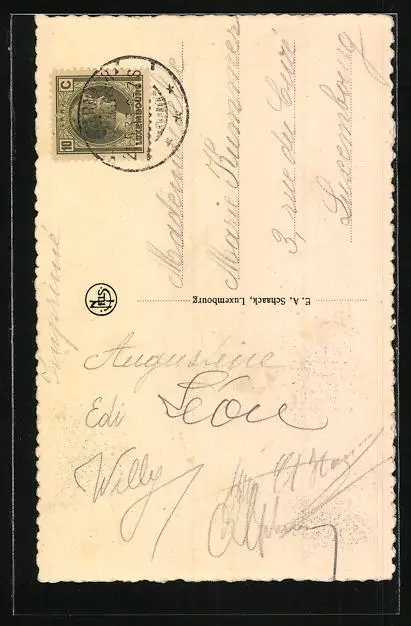 10 C
LUXEMBOURG
Mademoiselle
Marie Kummer
3, rue du Curé
Luxembourg
E. A. Schaack, Luxembourg
NELS
Imprimé
Augustine
Edi Léon
Willy